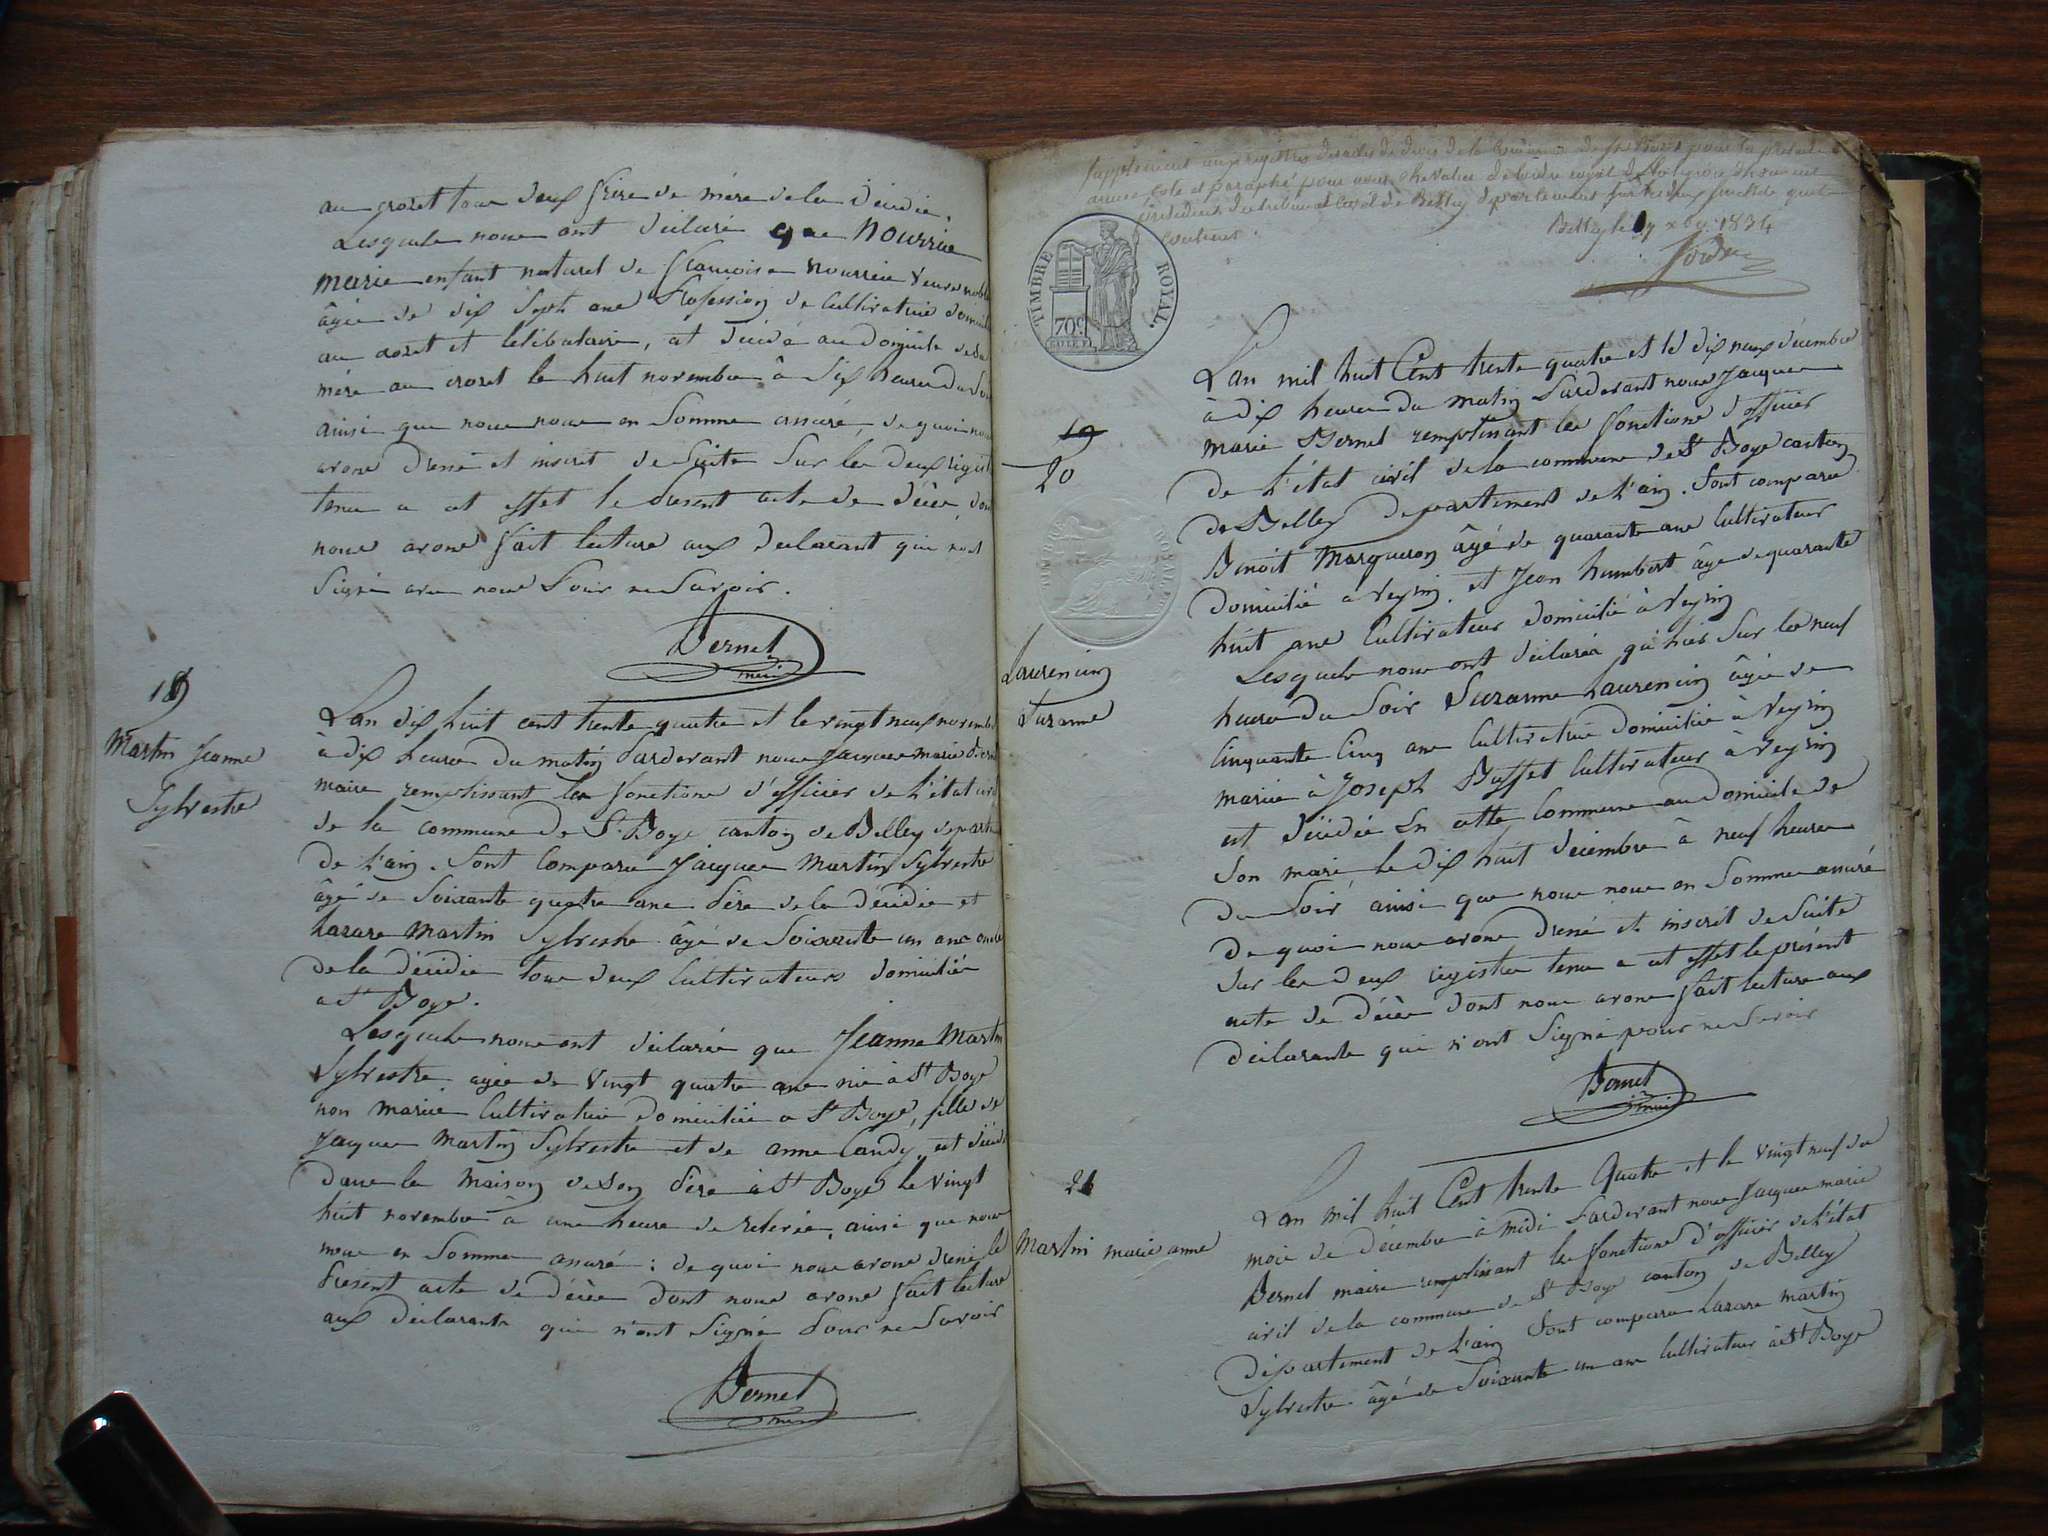 au crozet tous deux frère de mère de la décédée.
Lesquels nous ont déclaré que Nourrice
marie enfant naturel de françoise nourrice veuve
âgée de dix sept ans Profession de Cultivatrice domicilié
au crozet et célibataire, et décédé au domicile de sa
mère au crozet le huit novembre à six heures du soir
ainsi que nous nous en Somme assuré, de quoi nous
avons dressé et inscrit de suite sur les deux registres
tenu a cet effet le Présent acte de décès, dont
nous avons fait lecture aux déclarant qui n'ont
Signé avec nous Pour ne Savoir.
Dernel
maire
19
Martin Jeanne
Sylvestre
Lan dix huit cent trente quatre et le vingt neuf novembre
à dix heures du matin Pardevant nous Jacques marie Dernel
maire remplissant les fonctions d'officier de l'état civil
de la commune de St Boys canton de Belley départ
de l'ain. Sont Comparu Jacques Martin Sylvestre
âgé de Soixante quatre ans Père de la décédée et
Lazare Martin Sylvestre âgé de Soixante un ans oncle
de la décédée tous deux Cultivateurs domiciliés
a St Boys.
Lesquels nous ont déclaré que Jeanne Martin
Sylvestre agée de vingt quatre ans née à St Boys
non mariée Cultivatrice domiciliée a St Boys, fille de
Jacques Martin Sylvestre et de anne Candy, est décédé
Dans la Maison de Son Père à St Boys le vingt
huit novembre à une heure de relevée, ainsi que nous
nous en Somme assuré : de quoi nous avons dressé le
Présent acte de décès dont nous avons fait lecture
aux déclarants qui n'ont Signé Pour ne Savoir
Dernel
maire
Supplément aux registres des actes de décès de la Commune de St Boys pour la présente
année, coté et paraphé par nous Chevalier de l'ordre royal de la légion d'honneur
président du tribunal Civil de Belley département
Belley le 19 xbre 1834
TIMBRE ROYAL.
70c
19
20
Laurencin
Suzanne
Lan mil huit Cent trente quatre et le dix neuf décembre
à dix heures du matin Pardevant nous Jacques
marie Dernel remplissant les fonctions d'officier
de l'état civil de la commune de St Boys canton
de Belley département de l'ain. Sont comparu
Benoit Marqueron âgé de quarante ans Cultivateur
domicilié a Veyrin. et Jean humbert âge de quarante
huit ans Cultivateur domicilié à Veyrin
Lesquels nous ont déclaré qu'hier Sur les neuf
heures du Soir Suzanne Laurencin âgée de
Cinquante Cinq ans Cultivatrice domiciliée à Veyrin
mariée à Joseph Buffet Cultivateur à Veyrin
est décédée En cette Commune au domicile de
Son mari le dix huit décembre à neuf heures
du Soir ainsi que nous nous en Somme assuré
De quoi nous avons dressé et inscrit de suite
Sur les deux registres tenu a cet effet le présent
acte de décès dont nous avons fait lecture aux
déclarants qui n'ont Signé pour ne Savoir
Dernel
maire
21
Martin marie anne
Lan mil huit Cent trente Quatre et le vingt neuf du
mois de décembre à midi Pardevant nous Jacques marie
Dernel maire remplissant les fonctions d'officier de l'état
civil de la commune de St Boys canton de Belley
département de l'ain Sont comparu Lazare martin
Sylvestre âgé de Soixante un ans Cultivateur à St Boys